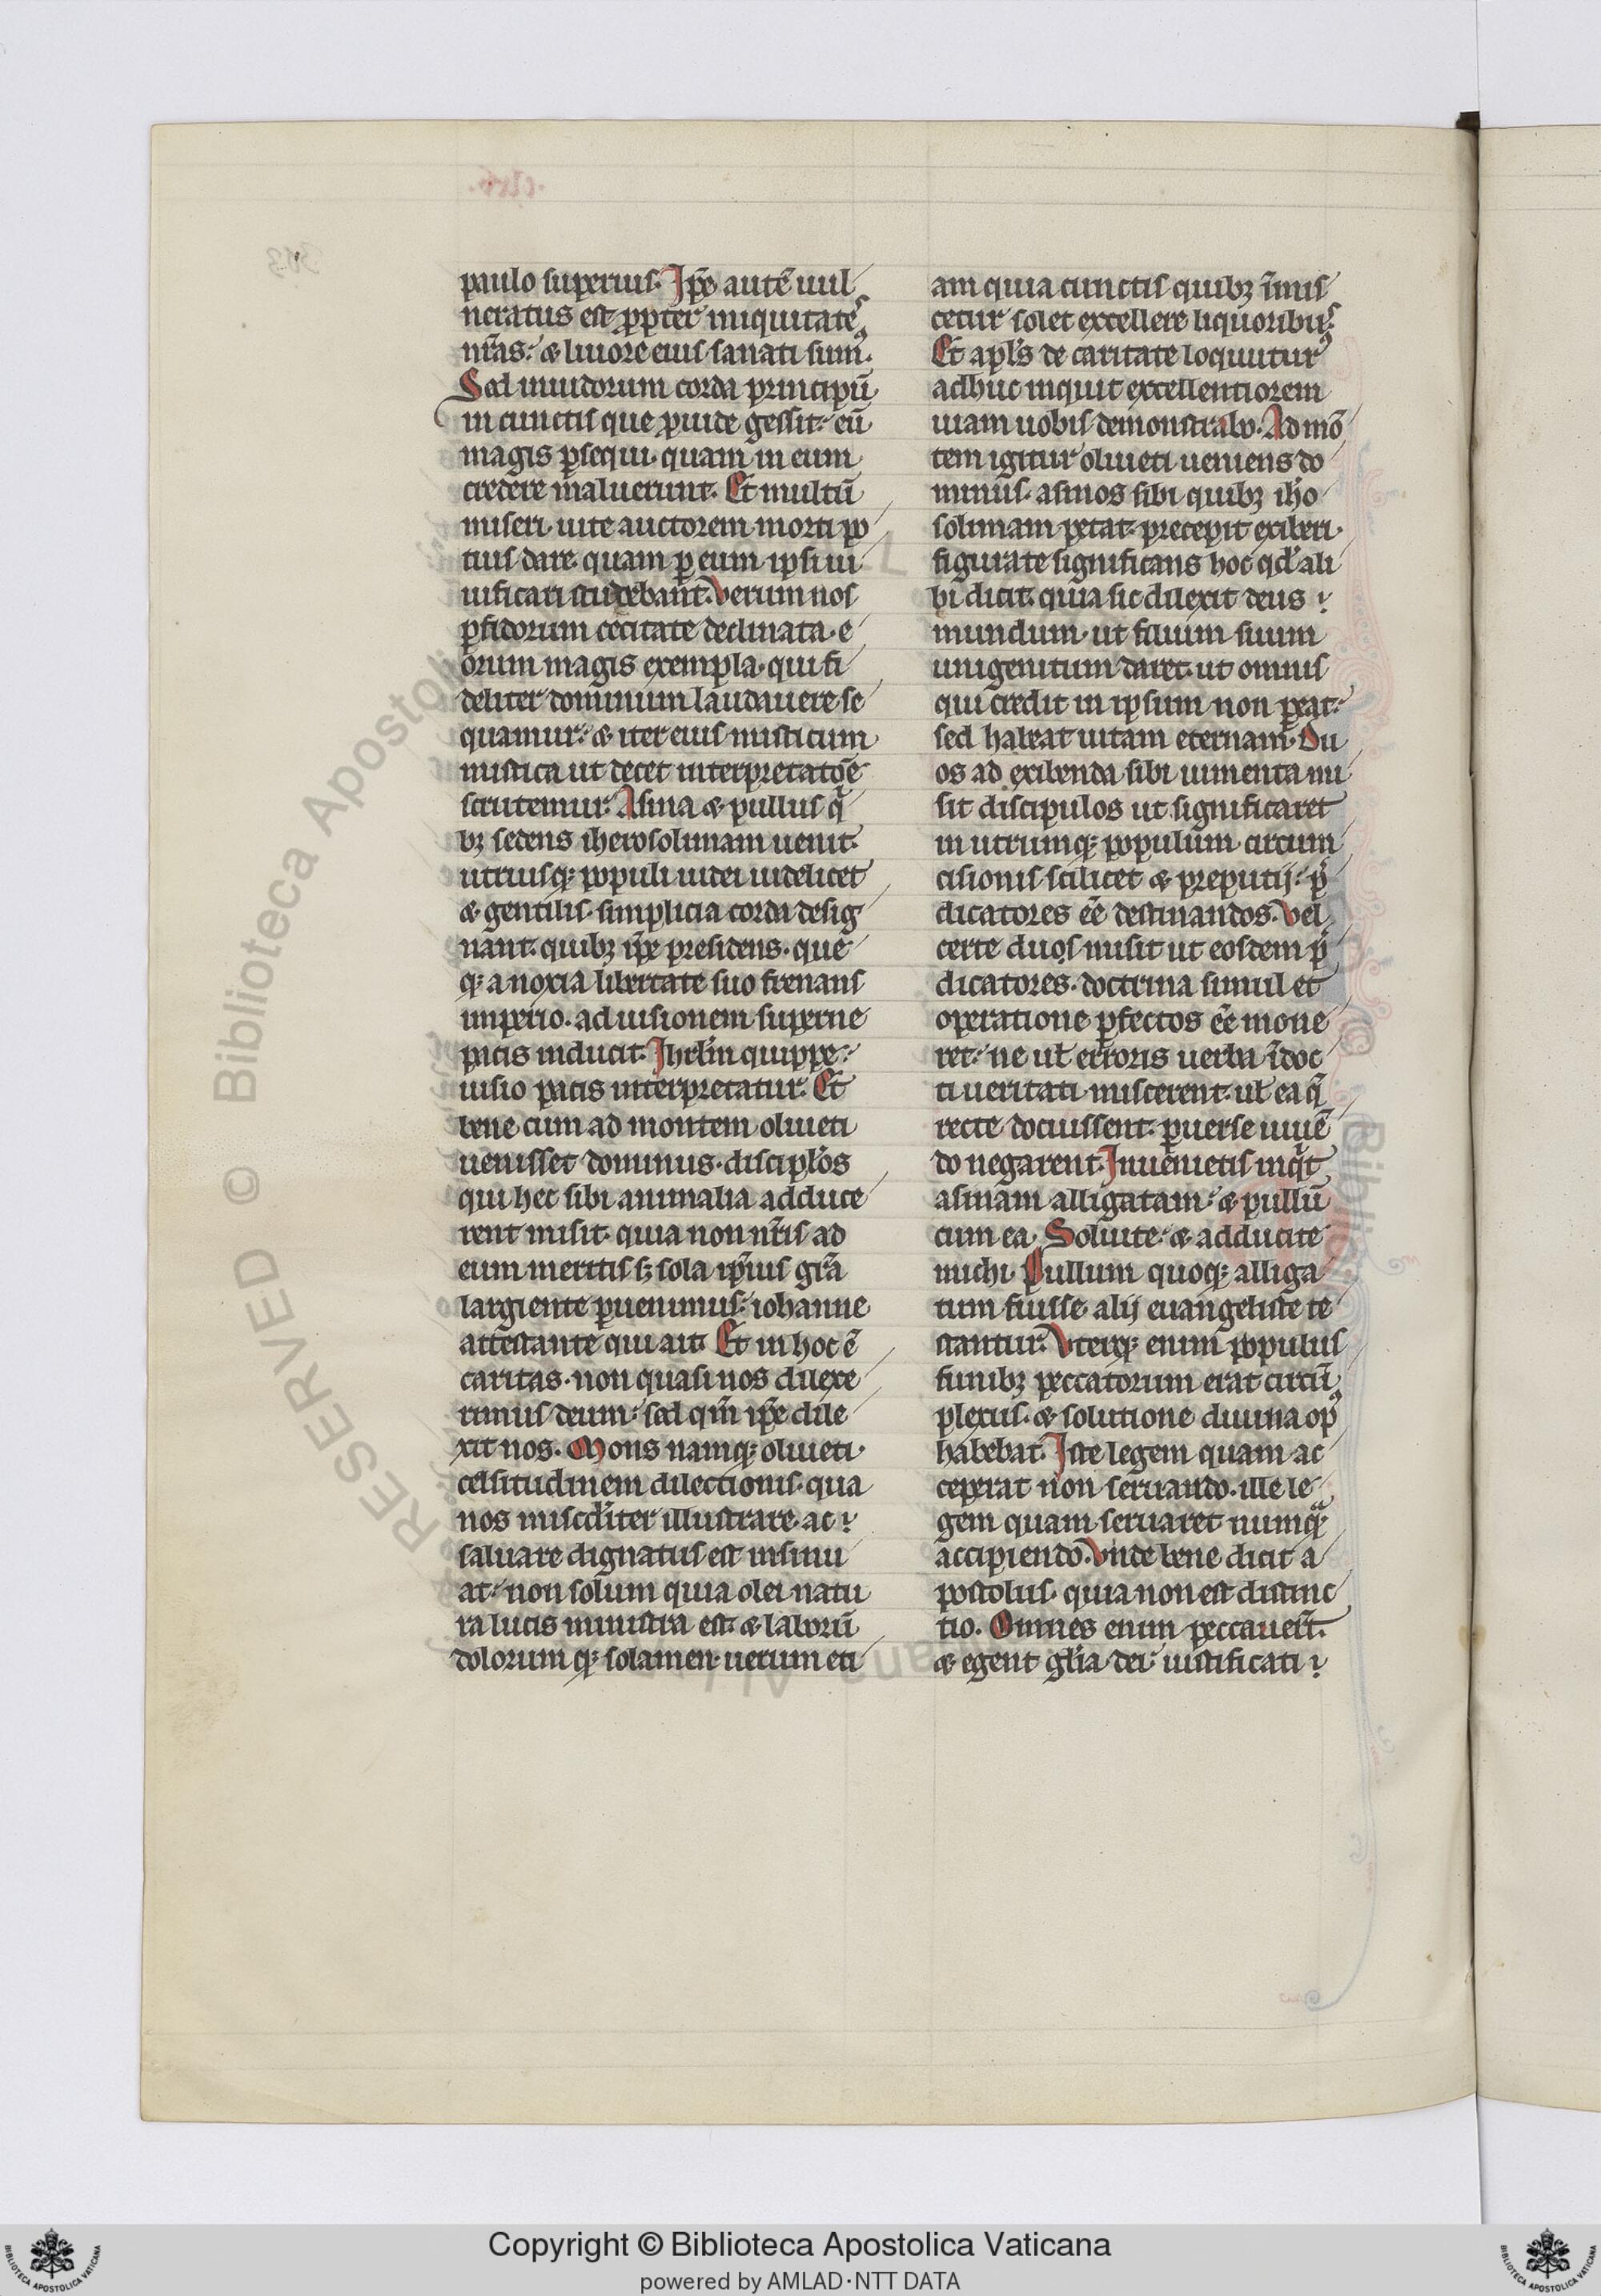 paulo superius. Ip̄e autē uul
neratus est ꝓpter iniquitatēˢ
nr̄as. ⁊ liuore eius sanati sumꝰ.
Sed inuidorum corda principū
in cunctis que ꝓuide gessit. eū
magis ꝑsequi. quam in eum
credere maluerunt. Et multū
miseri. uite auctorem morti po
tius dare. quam ꝑ eum ipsi ui
uificari studebant̄. Verum nos
ꝑfidorum cecitate declinata. e
orum magis exempla. qui fi
deliter dominum laudauere. se
quamur. ⁊ iter eius misticum
mistica ut decet interpretatōe
scrutemur. Asina ⁊ pullus qͥ
bꝫ sedens iherosolimam uenit.
utriusqꝫ populi iudei uidelicet
⁊ gentilis. simplicia corda desig
nant. quibꝫ ip̄e presidens. que
qꝫ a noxia libertate suo frenans
imperio. ad uisionem superne
pacis inducit. Ihrl̄m quippe.
uisio pacis interpretatur. Et
bene cum ad montem oliueti
uenisset dominus. discipl̄os
qui hec sibi animalia adduce
rent misit. quia non nr̄is ad
eum meritis sꝫ sola ip̄ius gr̄a
largiente ꝑuenimus. iohanne
attestante qui ait. Et in hoc ē
caritas. non quasi nos dilexe
rimus deum. sed qm̄ ip̄e dile
xit nos. Mons namqꝫ oliueti.
celsitudinem dilectionis. qua
nos miscd̄iter illustrare. ac
saluare dignatus est insinu
at. non solum quia olei natu
ra lucis ministra est. ⁊ laborū
dolorumqꝫ solamen. uerum eti
am quia cunctis quibꝫ īmis
cetur solet excellere liquoribuˢ.
Et apl̄s de caritate loquuturꝰ
adhuc inquit excellentiorem
uiam uobis demonstrabo. Ad mō
tem igitur oliueti ueniens do
minus. asinos sibi quibꝫ ih̄o
solimam petat. precepit exiberi.
figurate significans hoc qd̄ ali
bi dicit. quia sic dilexit deus
mundum. ut filium suum
unigenitum daret. ut omnis
qui credit in ipsum non ꝑeat.
sed habeat uitam eternam. Du
os ad exibenda sibi iumenta mi
sit discipulos ut significaret
in utrumqꝫ populum circum
cisionis scilicet ⁊ preputij. p̄
dicatores eē destinandos. Vel
certe duos misit ut eosdem p̄
dicatores. doctrina simul et
operatione ꝑfectos eē mone
ret. ne ul̄ erroris uerba īdoc
ti ueritati miscerent. ul̄ ea q̄
recte docuissent. ꝑuerse uiuē
do negarent. Inuenietis inqͥt
asinam alligatam. ⁊ pullū
cum ea. Soluite. ⁊ adducite
michi. Pullum quoqꝫ alliga
tum fuisse alij euangeliste te
stantur. Vterqꝫ enim populus
funibꝫ peccatorum erat circū
plexus. ⁊ solutione diuina opꝰ
habebat. Iste legem quam ac
ceperat non seruando. ille le
gem quam seruaret numqͣ
accipiendo. Vnde bene dicit a
postolus. quia non est distinc
tio. Omnes enim peccauer̄t.
⁊ egent gl̄ia dei. iustificati
© Biblioteca Apostolica
RESERVED
Copyright © Biblioteca Apostolica Vaticana
powered by AMLAD·NTT DATA